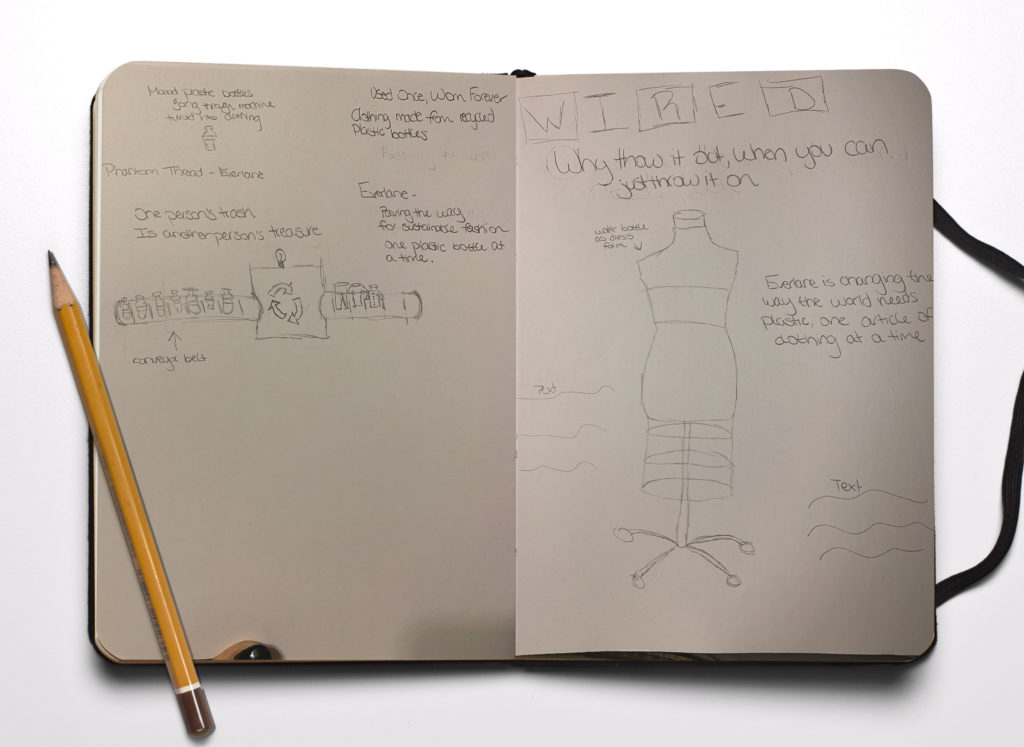 plastic bottles
going through machine
turned into clothing
Phantom Thread - Everlane
One person's trash
Is another person's treasure
conveyor belt
Used Once, Worn Forever
Clothing made from recycled
Plastic bottles
Everlane -
Paving the way
for sustainable fashion
one plastic bottle at
a time.
WIRED
Why thow it out, when you can
just throw it on
water bottle
as dress
form
Everlane is changing the
way the world needs
plastic, one article of
clothing at a time
Text
Text